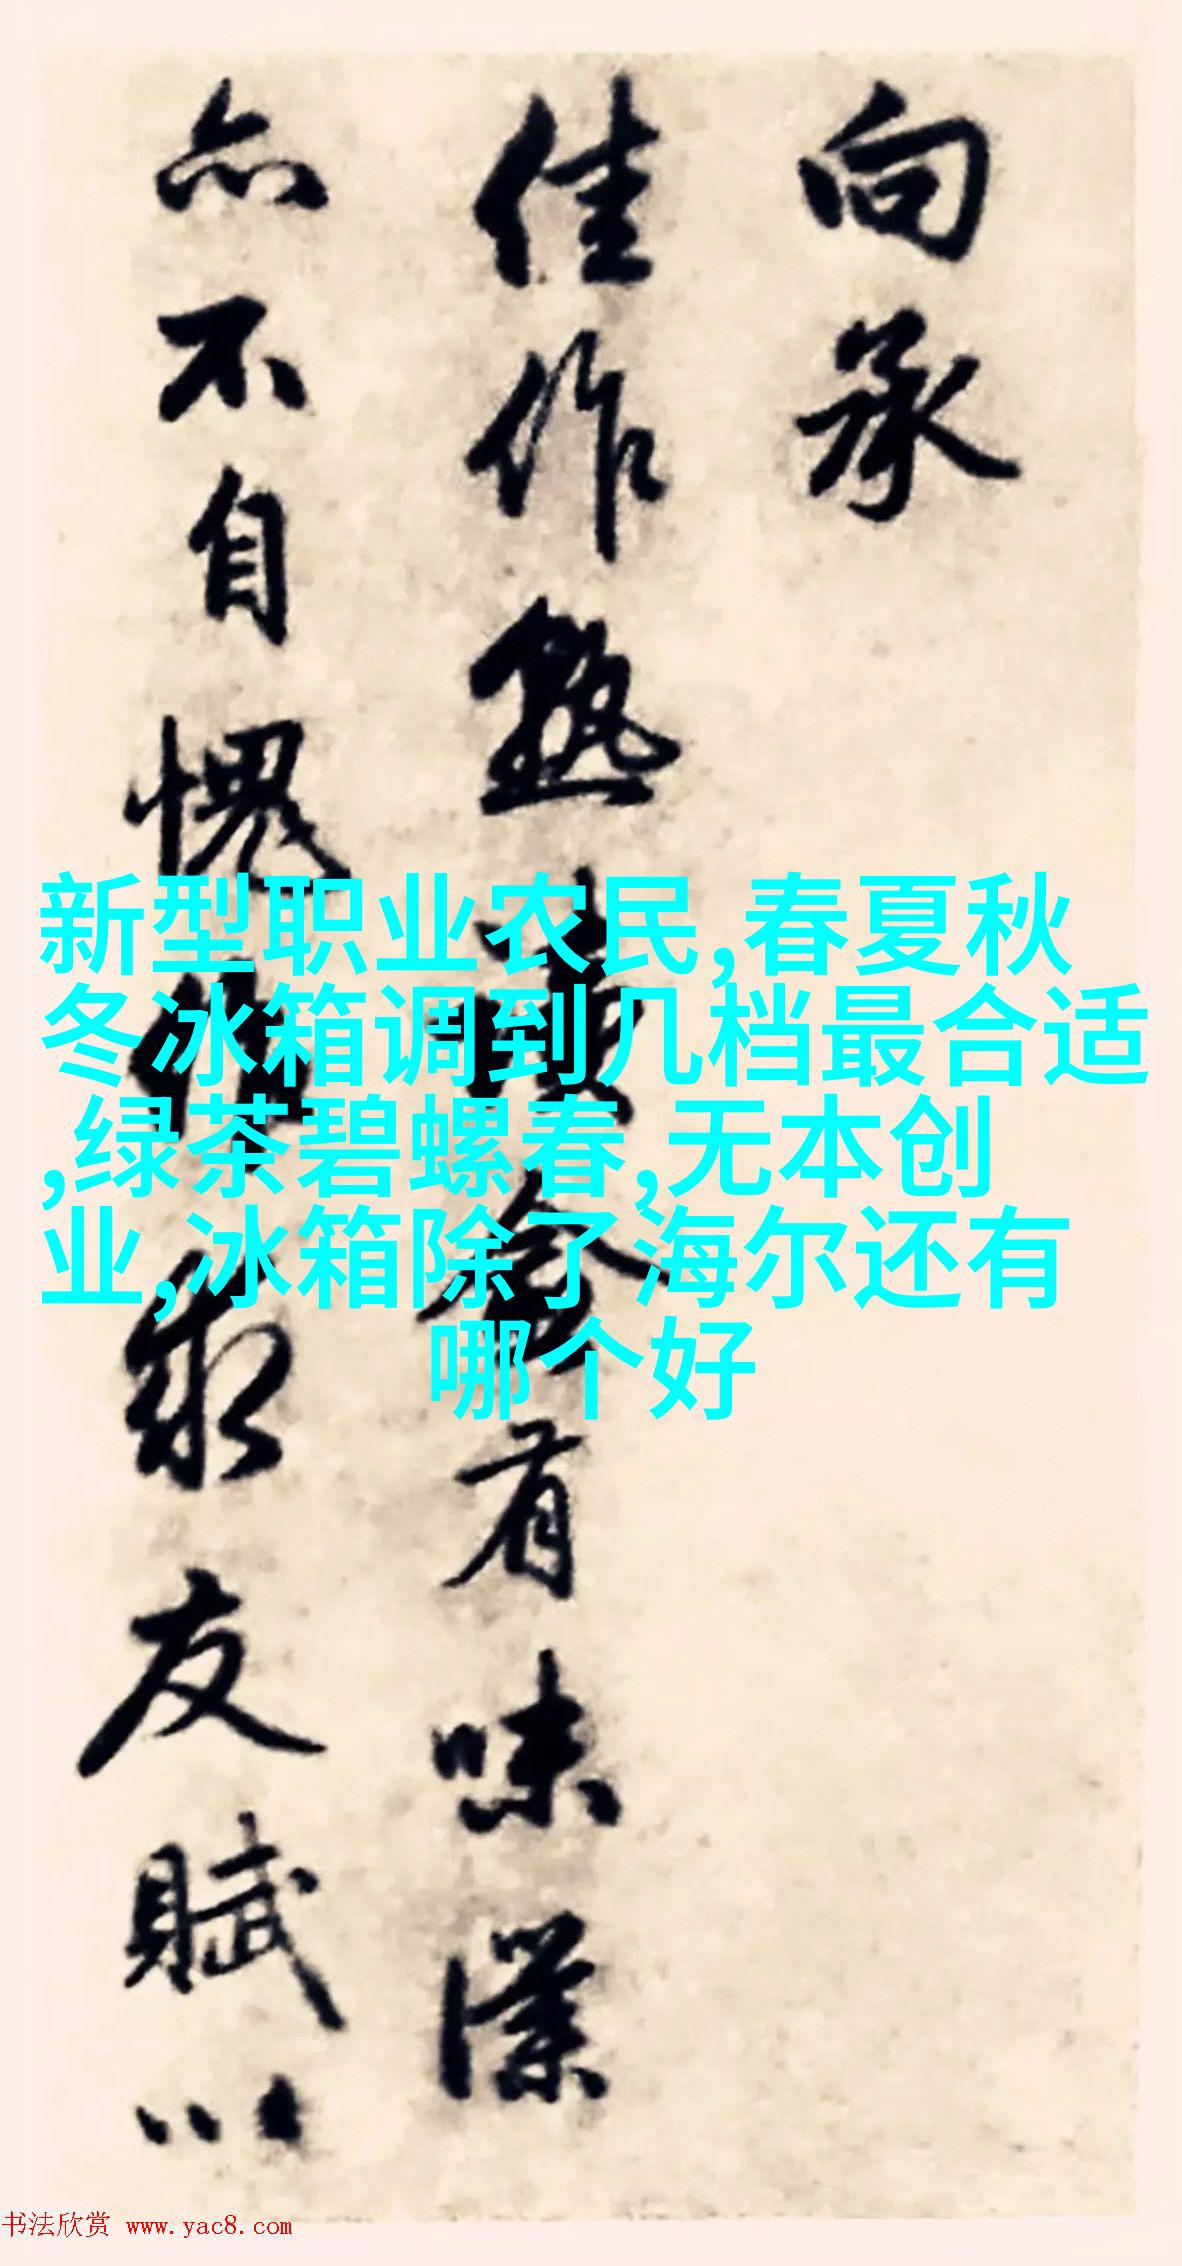 向承
佳作熟读会有味深
亦不自愧也承友赋以
新型职业农民,春夏秋
冬冰箱调到几档最合适
,绿茶碧螺春,无本创
业,冰箱除了海尔还有
哪个好
书法欣赏 www.yac8.com